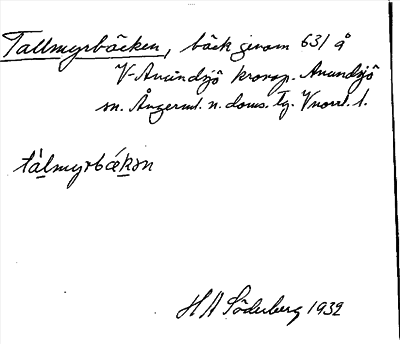 Tallmyrbäcken, bäck genom 631 å
V-Anundsjö kronop. Anundsjö
sn. Ångerml. n. doms. tg. Vnorrl. l.
tàlmyrbækən
H A Söderberg 1932